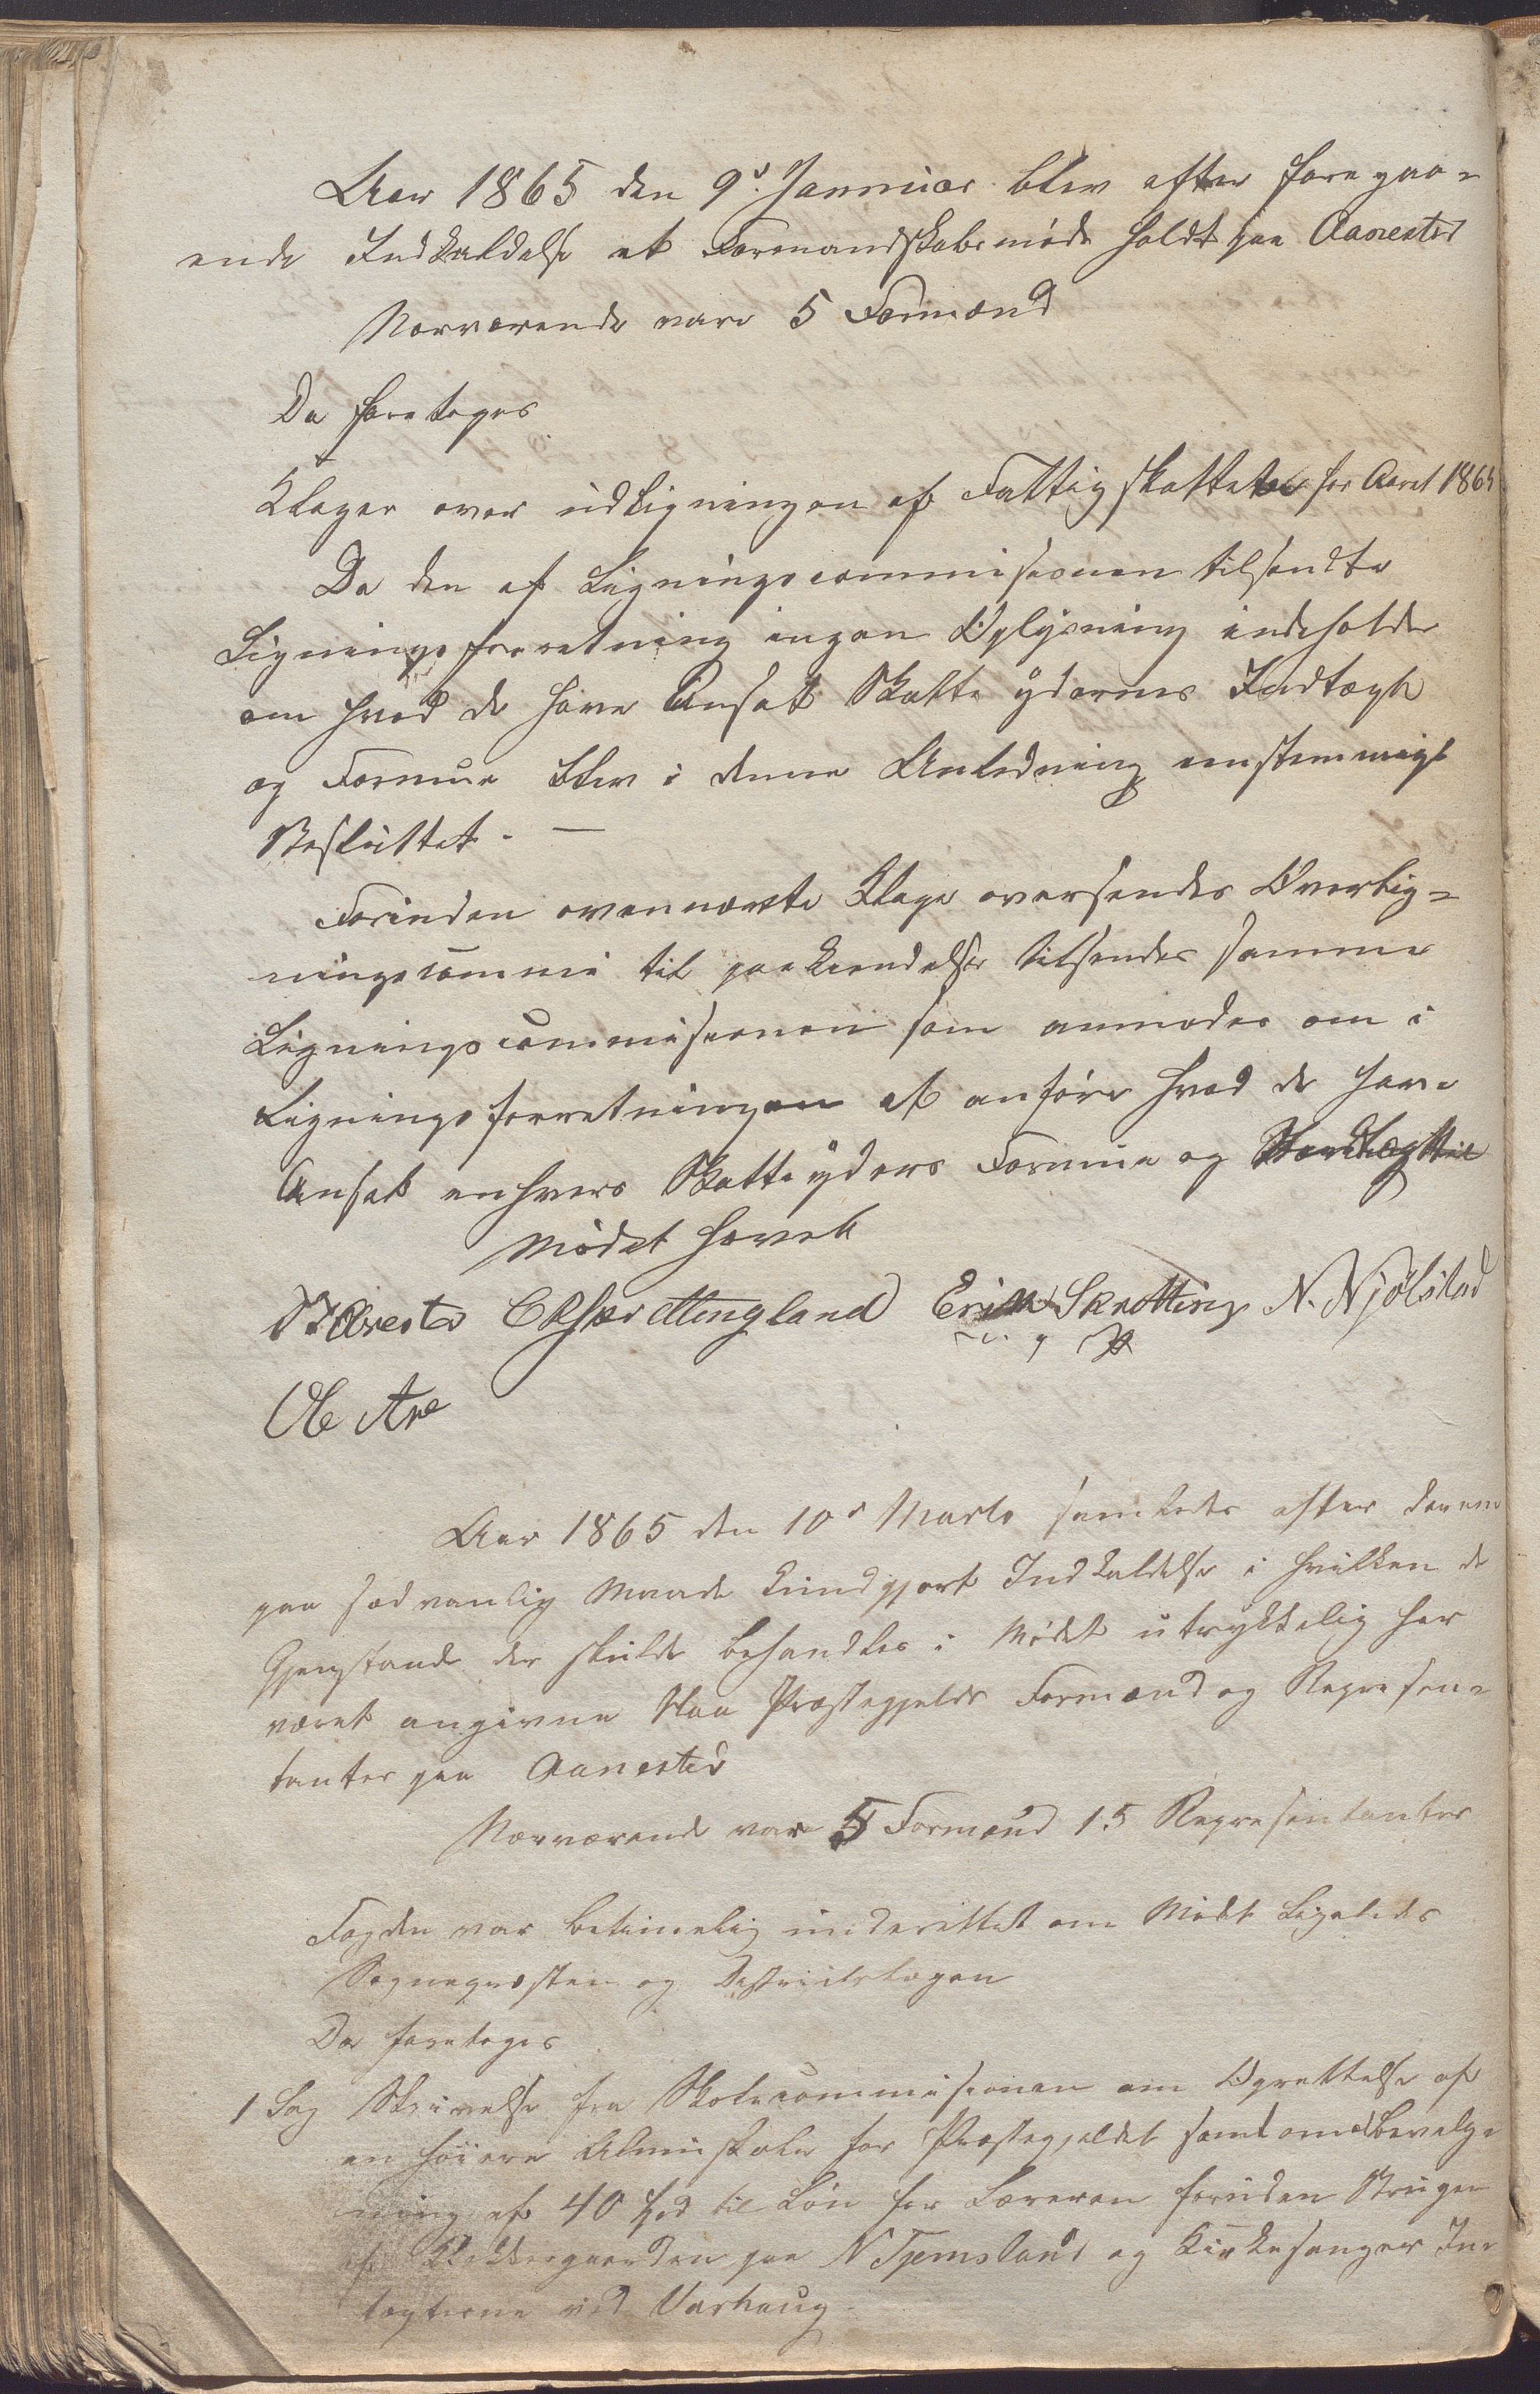 Aar 1865 den 9d. Januuar blev efter foregaa-
ende Indkaldelse et Formandskabsmøde holdt paa Aanestad
Nærværende vare 5 Formænd
Da foretoges
Klager over udligningen af Fattigskatten for Aaret 1865
Da den af Ligningscommisionen tilsendte
Ligningsforretning ingen Oplysning indeholder
om hvad de have Ansat Skatte yderens Indtægt
og Formue blev i denne Anledning eenstemmigt
Besluttet. —
Forinden ovennævnte Klage oversendes Overlig-
ningscommi til paakiendelse tilsendes samme
Ligningscommisionen som anmodes om i
Ligningsforretningen at anføre hvad de have
Ansat enhvers Skatteyders Formue og Indtægt til
Mødet hævet
Erik Skretting N. Njølstad
m. p. P.
Ole Are
Aar 1865 den 10d Marts samledes efter derom
paa sædvanlig Maade kundgjort Indkaldelse i hvilken de
Gjenstande der skulde behandles i Mødet utrykkelig har
været angivne Haa Præstegjelds Formænd og Represen-
tanter paa Aanestad
Nærværende vare 5 Formænd 15 Representanter
Fogden var betimelig underettet om Mødet Ligeledes
Sognepræsten og Distriktslægen
Da foretoges
1 Sag Skrivelse fra Skolecommisionen om Oprettelse af
en høiere Almueskole for Præstegjeldet samt om Bevilge
ning af 40 Spd til Løn for Læreren foruden Brugen
af Klokkergaarden paa N Tjemsland og Kirkesanger In
tægterne ved Varhaug.